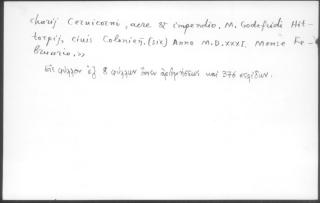 charij Ceruicorni, aere & impendio. M. Godefridi Hit-
torpij, ciuis Colonień. (sic) Anno M.D.XXXI. Mense Fe-
bruario.»
8 φύλλων ἄνευ ἀριθμήσεως καὶ 376 σελίδων.